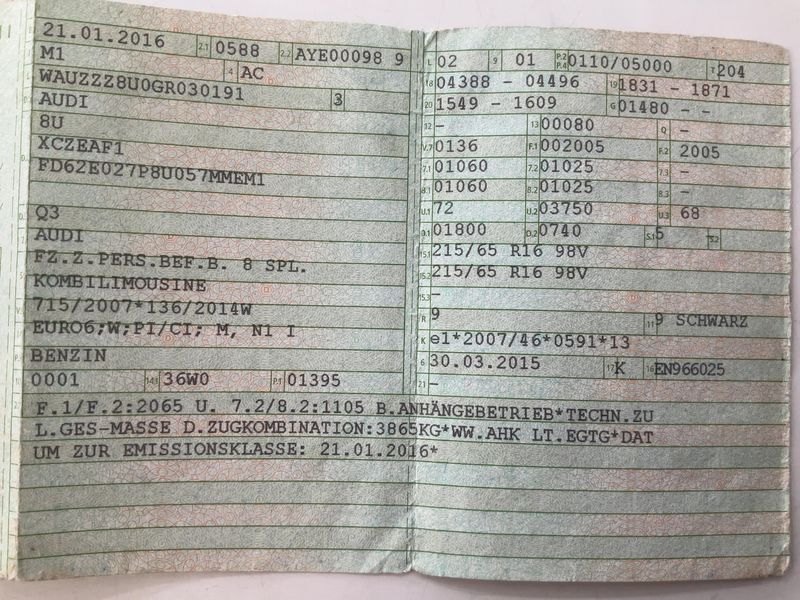 21.01.2016 2.1 0588 2.2 AYE00098 9
M1 4 AC
WAUZZZ8U0GR030191 3
AUDI
8U
XCZEAF1
FD62E027P8U057MMEM1
Q3
AUDI
FZ.Z.PERS.BEF.B. 8 SPL.
KOMBILIMOUSINE
715/2007*136/2014W
EURO6;W;PI/CI; M, N1 I
BENZIN
0001 14.1 36W0 P.1 01395
L 02 9 01 P.2 P.4 0110/05000 T 204
18 04388 - 04496 19 1831 - 1871
20 1549 - 1609 G 01480 - -
12 - 13 00080 Q -
V.7 0136 F.1 002005 F.2 2005
7.1 01060 7.2 01025 7.3 -
8.1 01060 8.2 01025 8.3 -
U.1 72 U.2 03750 U.3 68
D.1 01800 D.2 0740 S.1 5 S.2 -
15.1 215/65 R16 98V
15.2 215/65 R16 98V
15.3 -
R 9 11 9 SCHWARZ
K e1*2007/46*0591*13
6 30.03.2015 17 K 16 EN966025
21 -
F.1/F.2:2065 U. 7.2/8.2:1105 B.ANHÄNGEBETRIEB*TECHN.ZU
L.GES-MASSE D.ZUGKOMBINATION:3865KG*WW.AHK LT.EGTG*DAT
UM ZUR EMISSIONSKLASSE: 21.01.2016*